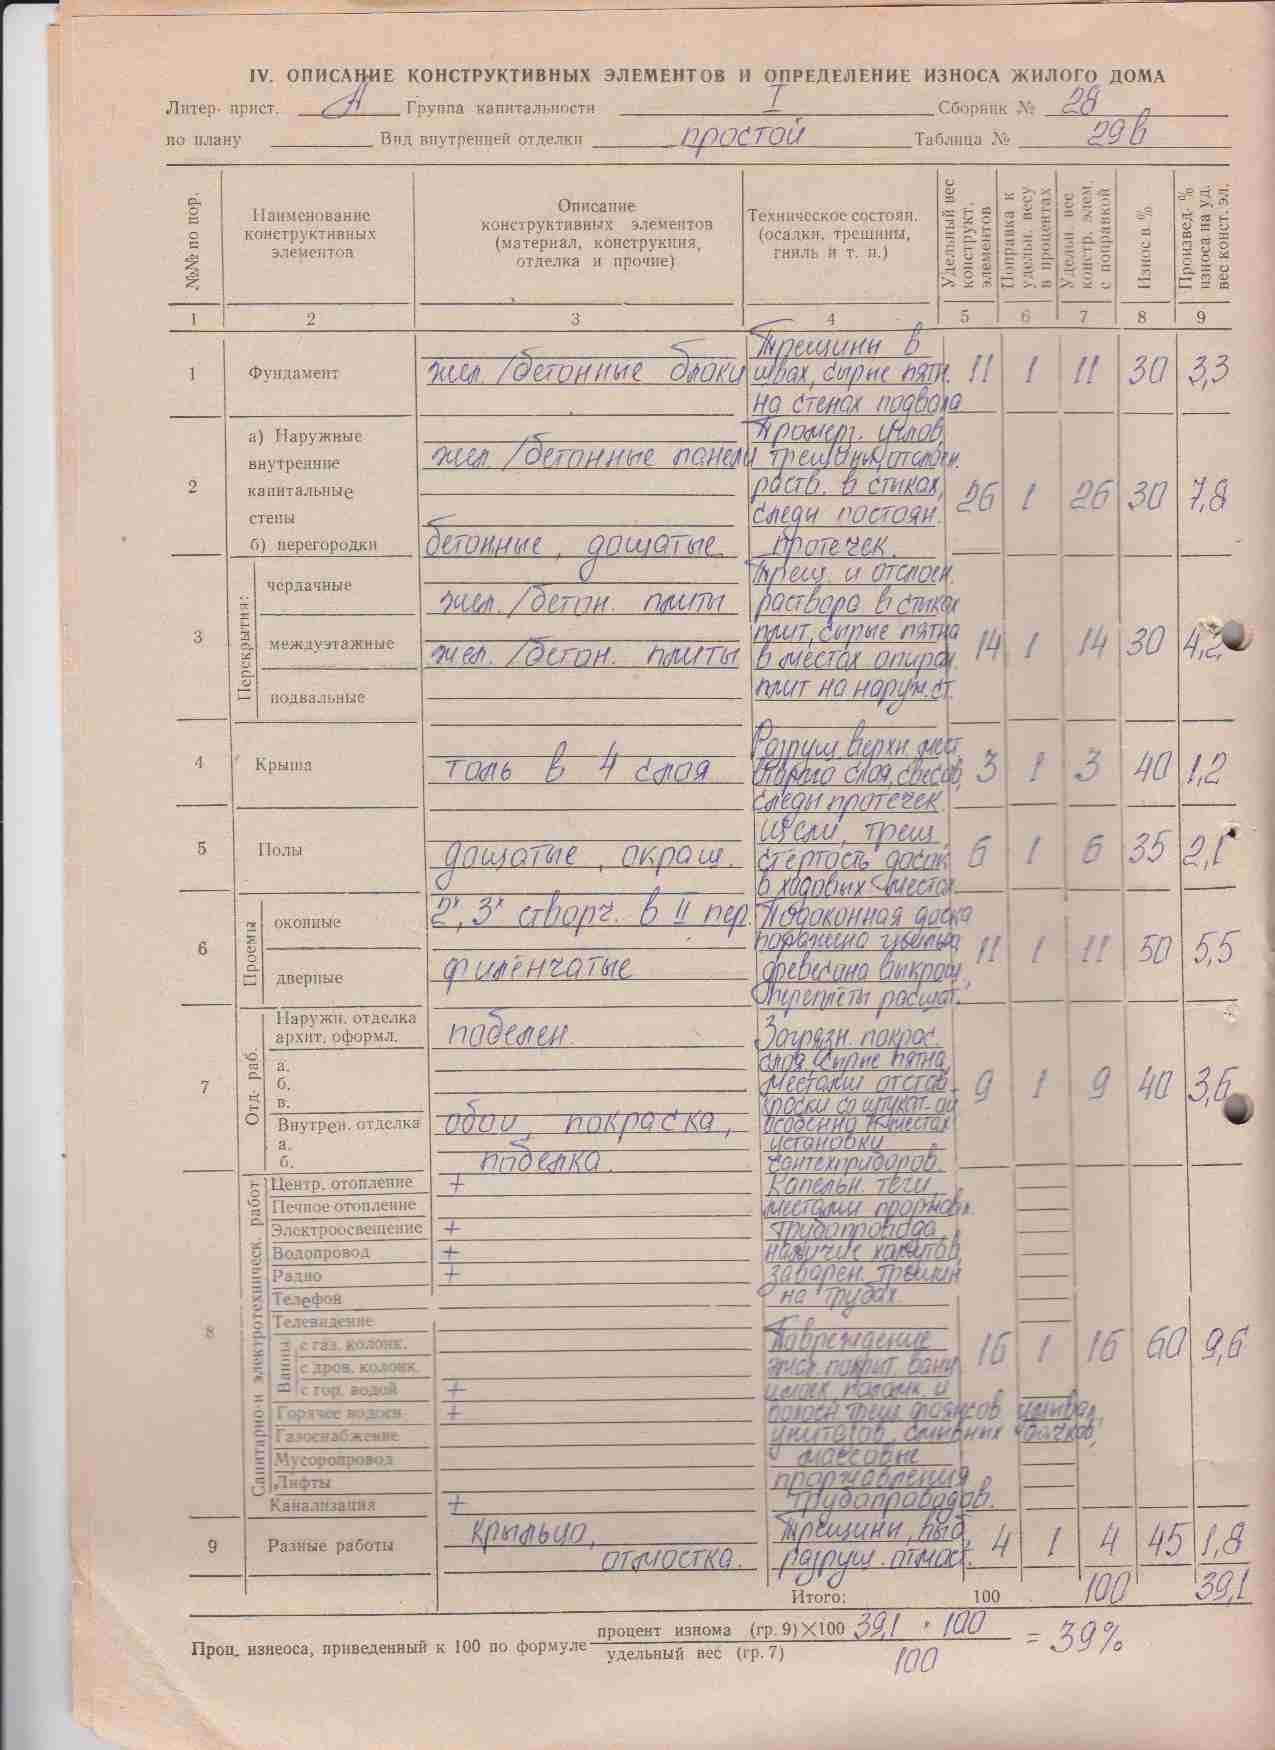 IV. ОПИСАНИЕ КОНСТРУКТИВНЫХ ЭЛЕМЕНТОВ И ОПРЕДЕЛЕНИЕ ИЗНОСА ЖИЛОГО ДОМА
Литер- прист. А Группа капитальности I Сборник № 28
по плану Вид внутренней отделки простой Таблица № 29в
№№ по пор.
Наименование конструктивных элементов
Описание конструктивных элементов (материал, конструкция, отделка и прочие)
Техническое состоян. (осадки, трещины, гниль и т. п.)
Удельный вес конструкт. элементов
Поправка к удельн. весу в процентах
Удельн. вес констр. элем. с поправкой
Износ в %
Произвед. % износа на уд. вес конст. эл.
1 2 3 4 5 6 7 8 9
Трещины в
1 Фундамент жел./бетонные блоки швах, сырые пятн. 11 1 11 30 3,3
на стенах подвала
а) Наружные Промерз. углов,
внутренние жел./бетонные панели трещины, отслоен.
2 капитальные раств. в стиках, 26 1 26 30 7,8
стены следы постоян.
б) перегородки бетонные, дощатые протечек.
Перекрытия:
чердачные жел./бетон. плиты Трещ. и отслоен. раствора в стиках
3 междуэтажные жел./бетон. плиты плит, сырые пятна в местах опиран. 14 1 14 30 4,2
подвальные плит на наруж. ст.
Разруш верхн.
4 Крыша толь в 4 слоя слоя, свесов, 3 1 3 40 1,2
следы протечек.
Щели, трещ.
5 Полы дощатые, окраш. стёртость досок 6 1 6 35 2,1
в ходовых местах.
Проемы
оконные 2х, 3х створч. в II пер. Подоконная доска
6 поражена гнилью, 11 1 11 50 5,5
дверные филёнчатые древесина выкрош.,
переплёты расшат.
Отд- раб.
Наружн. отделка
архит. оформл. побелен. Загрязн. покрас.
а. слоя, сырые пятна,
7 б. местами отстав. 9 1 9 40 3,6
в. краски со штукат-ой
Внутрен. отделка обои, покраска, особенно в местах
а. установки
б. побелка. сантехприборов.
Санитарно-и электротехническ. работ
Центр. отопление + Капельн. течи
Печное отопление местами
Электроосвещение + трубопровода,
Водопровод + наличие хомутов,
Радио + заварен. трещин
Телефон на трубах.
Телевидение
8 Ванны с газ. колонк. Повреждение 16 1 16 60 9,6
с дров. колонк. эмал. покрыт. ванн,
с гор. водой +
Горячее водосн +
Газоснабжение унитазов, смывных бачков,
Мусоропровод массовые
Лифты проржавления
Канализация + трубопроводов.
9 Разные работы крыльцо, Трещины, 4 1 4 45 1,8
отмостка. разруш. отмост.
Итого: 100 100 39,1
Проц. изнеоса, приведенный к 100 по формуле процент изнома (гр. 9)×100 39,1 * 100 = 39%
удельный вес (гр. 7) 100